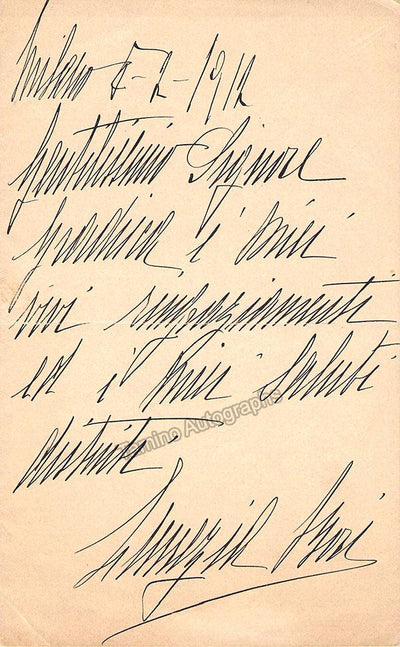 Milano 5-2-1912
Gentilissimo Signore
gradica i miei
vivi ringraziamenti
ed i miei saluti
distinti.
Tamino Autographs